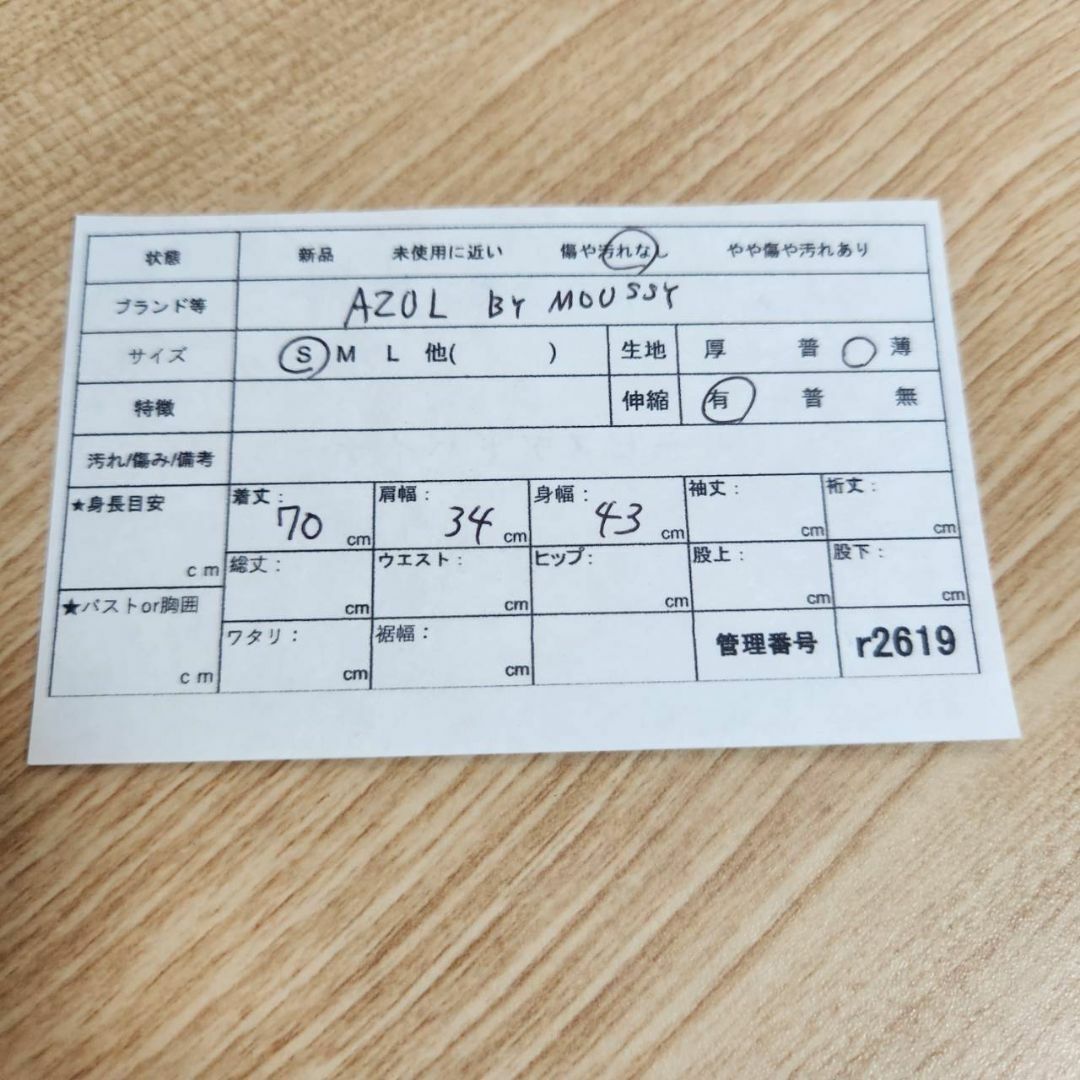 状態 新品 未使用に近い 傷や汚れなし やや傷や汚れあり
ブランド等 AZUL BY MOUSSY
サイズ S M L 他( ) 生地 厚 普 薄
特徴 伸縮 有 普 無
汚れ/傷み/備考
★身長目安 cm 着丈: 70 cm 肩幅: 34 cm 身幅: 43 cm 袖丈: cm 裄丈: cm
総丈: cm ウエスト: cm ヒップ: cm 股上: cm 股下: cm
★バストor胸囲 cm ワタリ: cm 裾幅: cm 管理番号 r2619